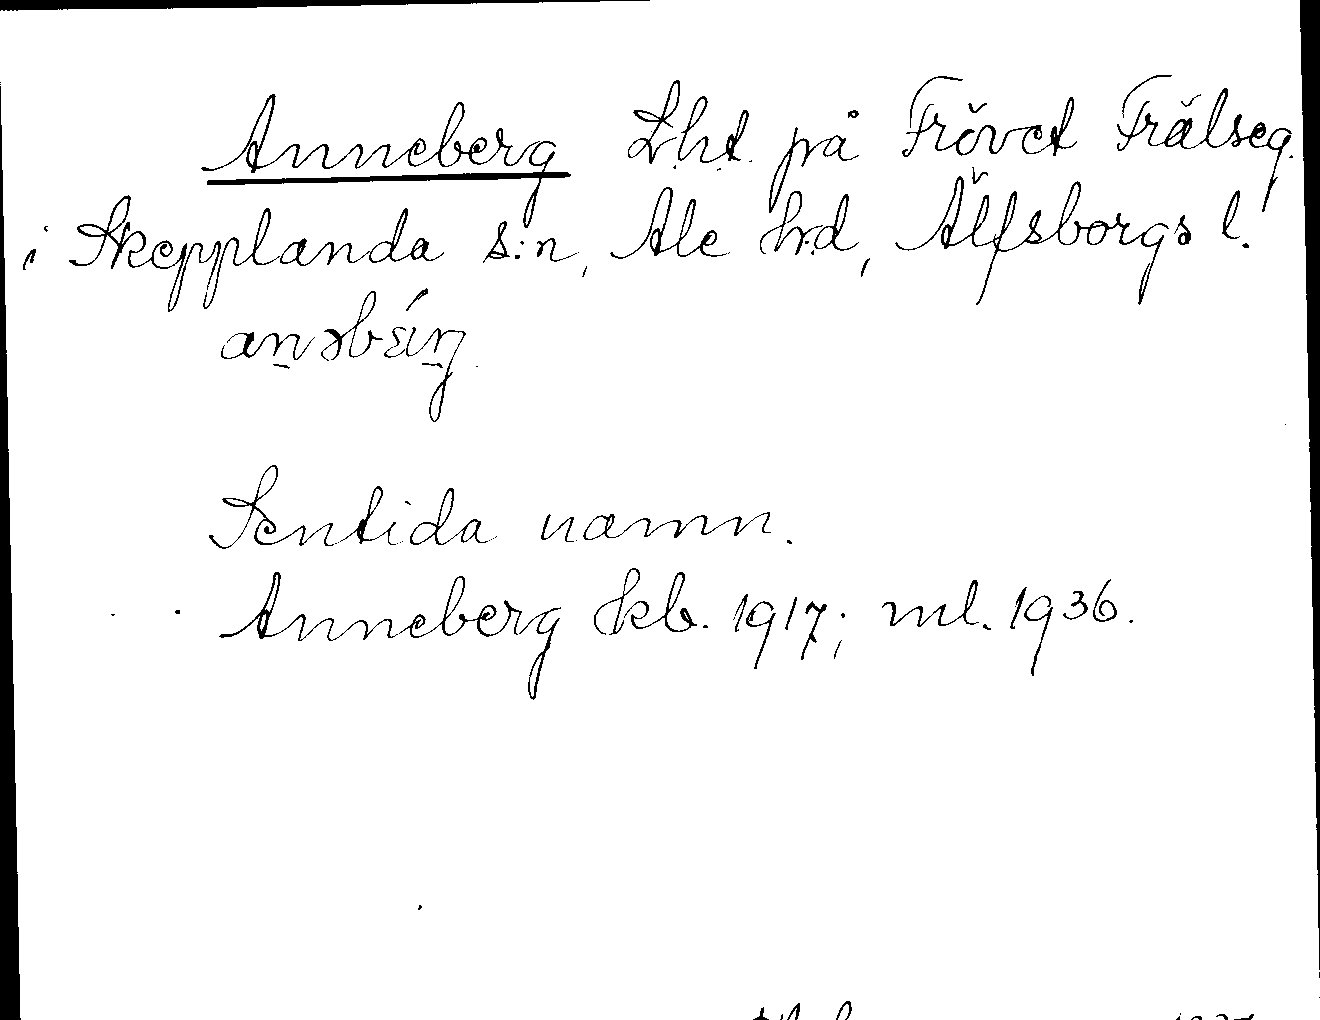 Anneberg Lht. på Frövet Frälseg.
i Skepplanda s:n, Ale h:d, Älfsborgs l.
Sentida namn.
Anneberg kb. 1917; ml. 1936.